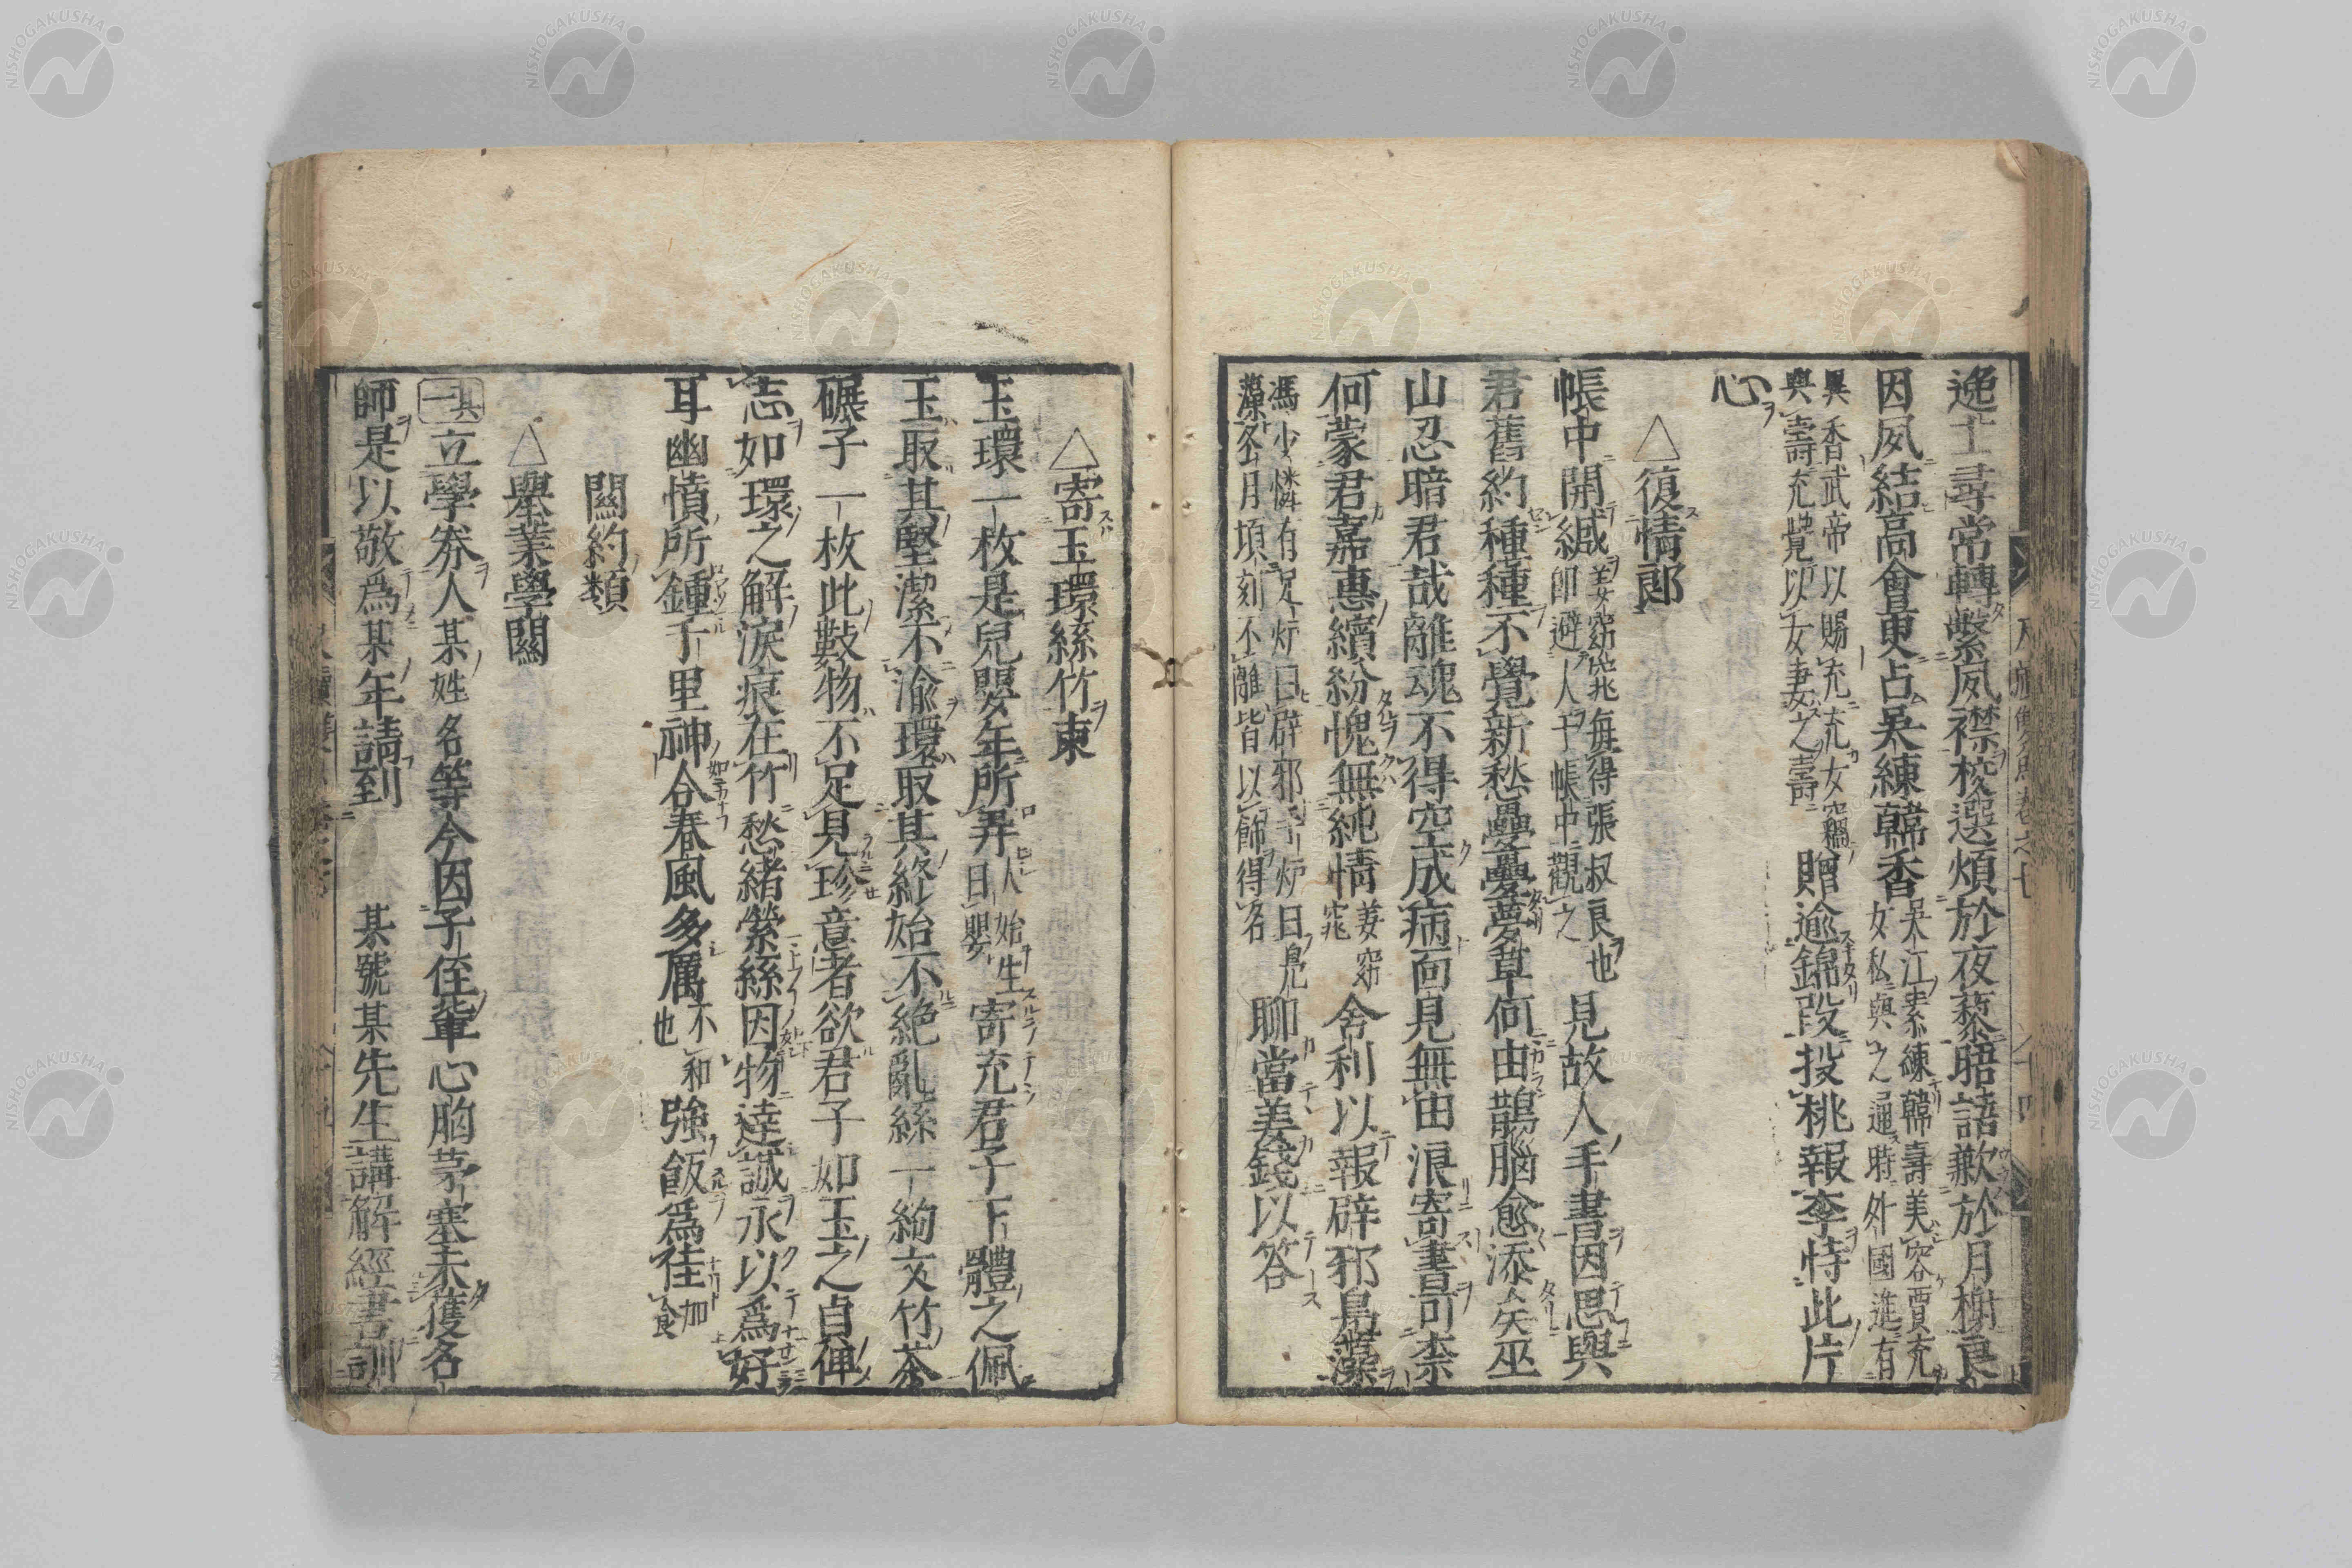 逸士尋常轉繫夙襟校選煩於夜藜晤語歉於月榭良
因夙結高會東占吳練韓香吳江素練韓壽美容賈充女私與之通時外國進有
異香武帝以賜充充女竊與壽充覺以女妻之壽贈逾錦段投桃報李恃此片
心
△復情郎
帳中開緘姜窈窕每得張叔良也即避人于帳中觀之見故人手書因思與
君舊約種種不覺新愁疊疊夢草何由鵲腦愈添矣巫
山忍暗君哉離魂不得空成病面見無由浪寄書曷柰
何蒙君嘉惠續紛愧無純情姜窈窕舍利以報辟邪鳧藻
馮少憐有足炉曰辟邪手炉曰鳧藻冬月頃刻不離皆以飾得名聊當姜錢以答
△寄玉環絲竹東
玉環一枚是兒嬰年所弄人始生曰嬰寄充君子下體之佩
玉取其堅潔不渝環取其終始不絕亂絲一絢文竹茶
碾子一枚此數物不足見珍意者欲君子如玉之貞俾
志如環之解淚痕在竹愁緒縈絲因物達誠永以為好
耳幽憤所鍾千里神合春風多厲不和也強飯為佳加食
關約類
△舉業學關
其一立學劵人某姓名等今因子侄輩心胸茅塞未獲名
師是以敬為某年請到某號某先生講解經書訓